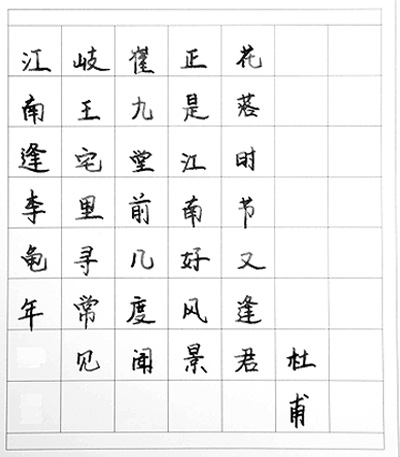 江南逢李龟年
岐王宅里寻常见
崔九堂前几度闻
正是江南好风景
花落时节又逢君
杜甫